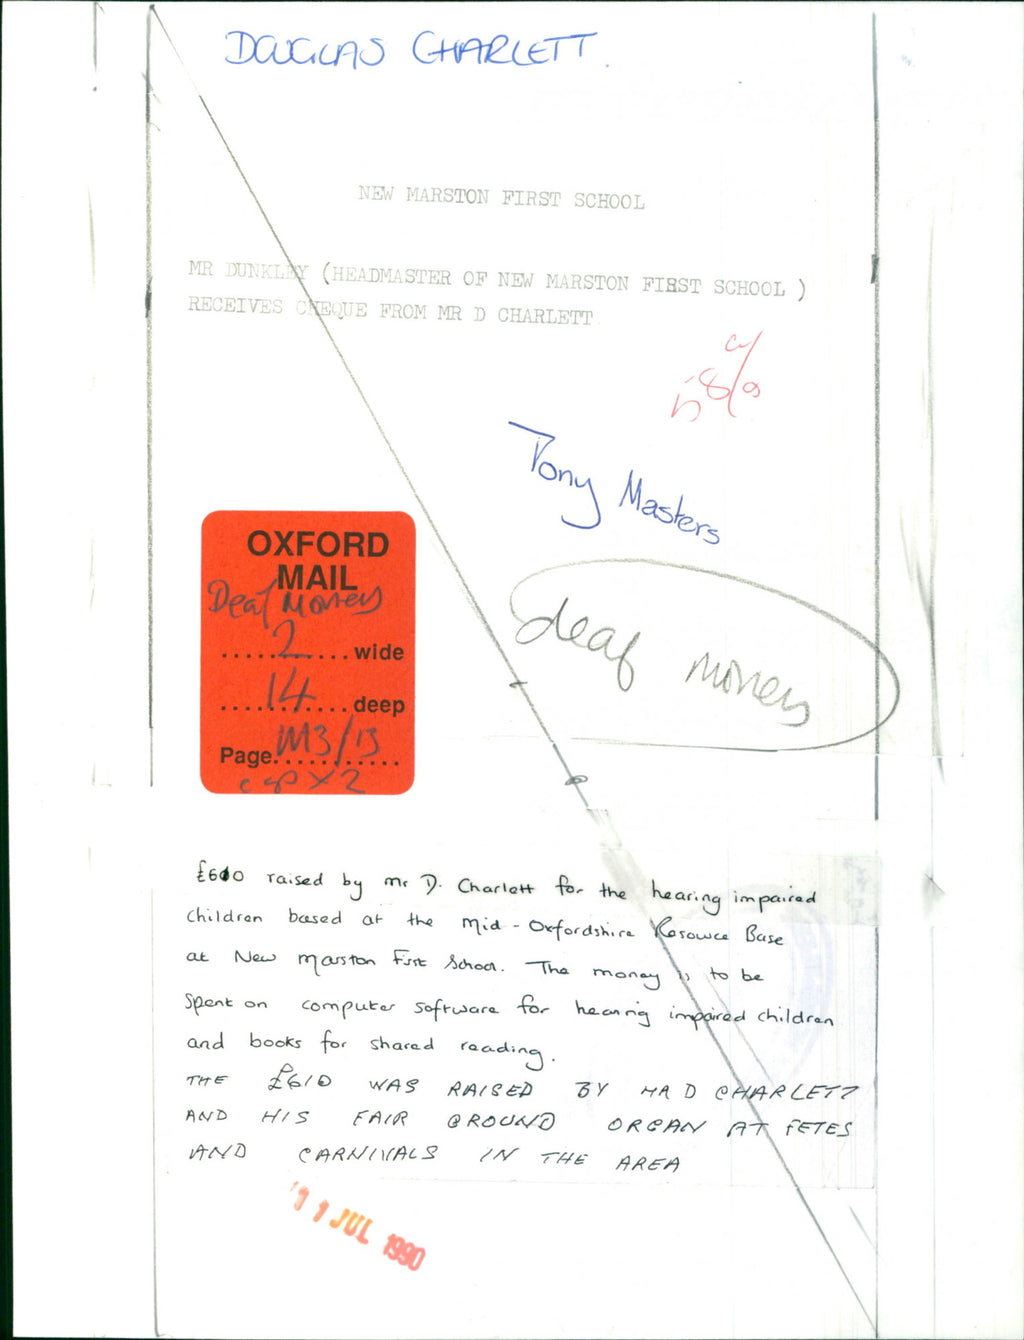 DOUGLAS CHARLETT
NEW MARSTON FIRST SCHOOL
MR DUNKLEY (HEADMASTER OF NEW MARSTON FIRST SCHOOL )
RECEIVES CHEQUE FROM MR D CHARLETT
Tony Masters
OXFORD
MAIL
Deaf Money
2 wide
14 deep
Page M3/13
x 2
deaf money
£610 raised by Mr D. Charlett for the hearing impaired
children based at the Mid - Oxfordshire Resource Base
at New Marston First School. The money is to be
spent on computer software for hearing impaired children
and books for shared reading.
THE £610 WAS RAISED BY MR D CHARLETT
AND HIS FAIR GROUND ORGAN AT FETES
AND CARNIVALS IN THE AREA
11 JUL 1990